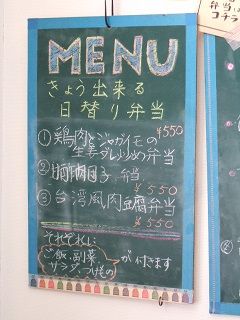 MENU
きょう出来る
日替り弁当
① 鶏肉とジャガイモの ¥550
弁当
②
弁当
③ 台湾風肉豆腐弁当
¥550
¥550
それぞれに
ご飯・副菜
サラダ・つけもの
が付きます
弁当
コチラ